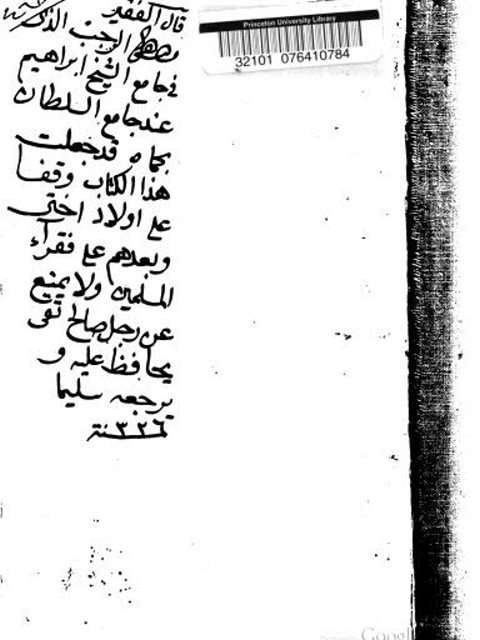 قال الفقير
مصطفى الرجب الذاكر
في جامع الشيخ ابراهيم
عند جامع السلطان
بحماه قد جعلت
هذا الكتاب وقفا
على اولاد اختي
وبعدهم على فقراء
المسلمين ولا يمنع
عن رجل صالح تقي
يحافظ عليه و
يرجعه سليما
سنة ١٣٢٦
Princeton University Library
32101 076410784
Google